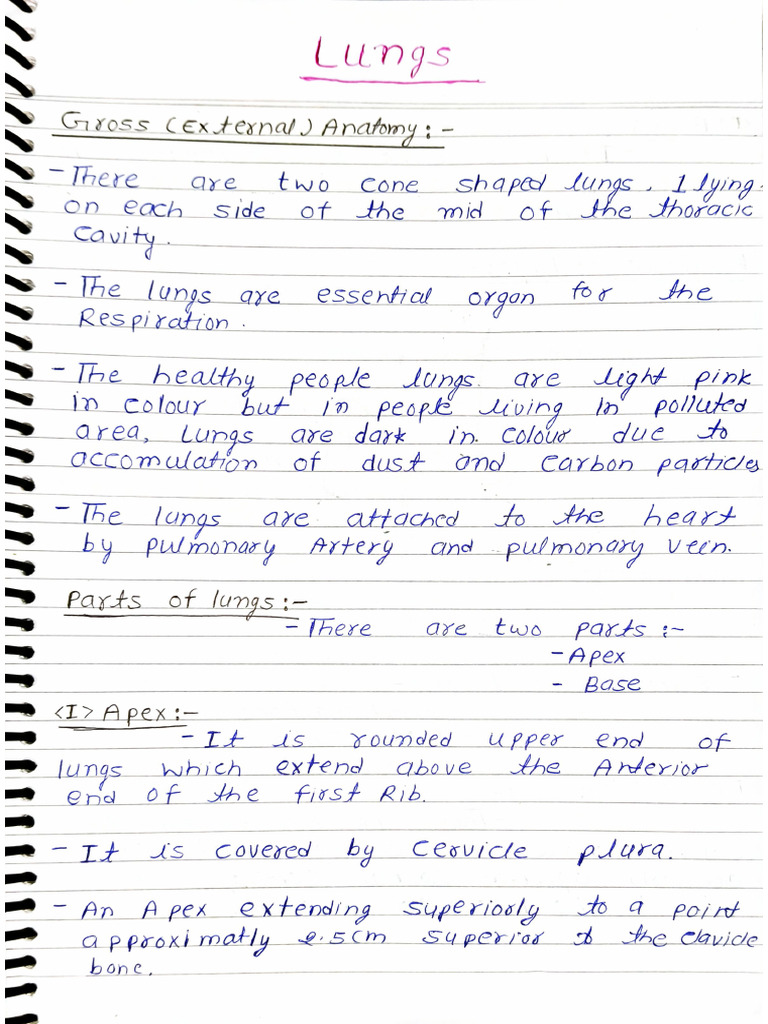 Lungs
Gross (External) Anatomy:-
- There are two cone shaped lungs, 1 lying
on each side of the mid of the thoracic
cavity.
- The lungs are essential organ for the
Respiration.
- The healthy people lungs are light pink
in colour but in people living in polluted
area, Lungs are dark in colour due to
accomulation of dust and carbon particles
- The lungs are attached to the heart
by pulmonary Artery and pulmonary vein.
Parts of lungs:-
- There are two parts:-
- Apex
- Base
<I> Apex:-
- It is rounded upper end of
lungs which extend above the Anterior
end of the first Rib.
- It is covered by cervicle plura.
- An Apex extending superiorly to a point
approximatly 2.5cm superior to the clavicle
bone.